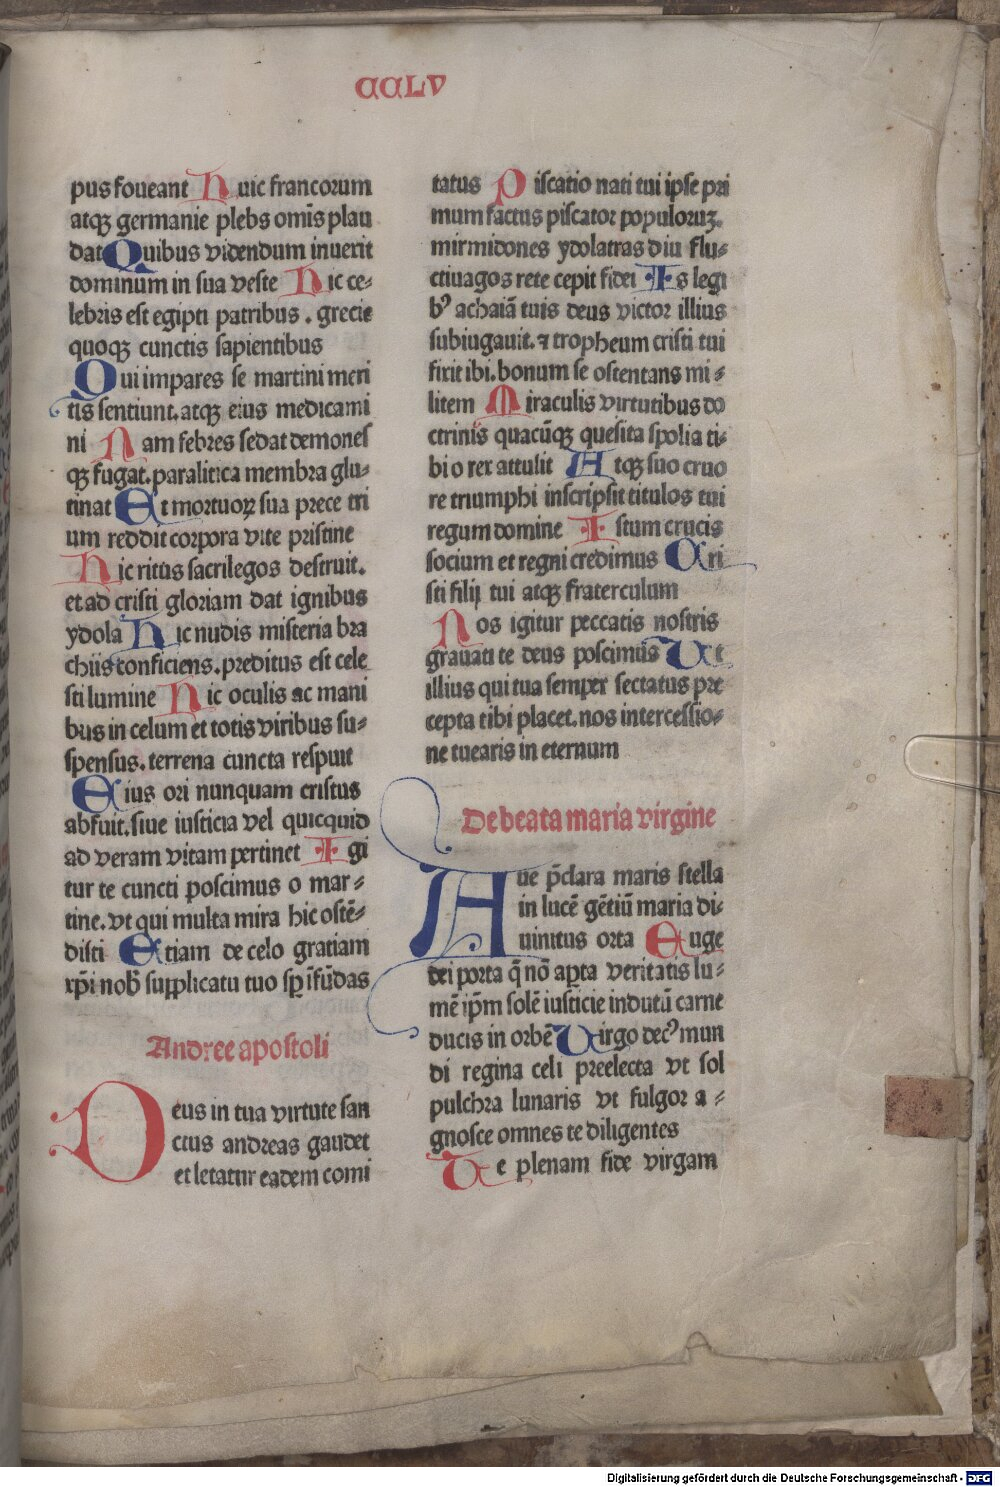 CCLV
pus foueant Huic francorum
atqꝫ germanie plebs om̄is plau
dat Quibus videndum inuerit
dominum in sua veste Hic ce⸗
lebris est egipti patribus . grecie
quoqꝫ cunctis sapientibus
Qui impares se martini meri
tis sentiunt. atqꝫ eius medicami
ni Nam febres sedat demones
qꝫ fugat. paralitica membra glu⸗
tinat Et mortuoꝝ sua prece tri
um reddit corpora vite pristine
Hic ritus sacrilegos destruit.
et ad cristi gloriam dat ignibus
ydola Hic nudis misteria bra
chiis conficiens. preditus est cele
sti lumine Hic oculis ac mani
bus in celum et totis viribus su⸗
spensus. terrena cuncta respuit
Eius ori nunquam cristus
abfuit. siue iusticia vel quicquid
ad veram vitam pertinet Igi
tur te cuncti poscimus o mar⸗
tine. vt qui multa mira hic ostē⸗
disti Etiam de celo gratiam
xp̄i nob̄ supplicatu tuo sꝑ īfūdas
Andree apostoli
Deus in tua virtute san
ctus andreas gaudet
et letatur eadem comi
tatus Piscatio nati tui ipse pri
mum factus piscator populoruꝫ.
mirmidones ydolatras diu flu⸗
ctiuagos rete cepit fidei Is legi
bꝰ achaiā tuis deus victor illius
subiugauit. ⁊ tropheum cristi tui
fixit ibi. bonum se ostentans mi⸗
litem Miraculis virtutibus do
ctrinis quacūqꝫ quesita spolia ti⸗
bi o rex attulit Atqꝫ suo cruo
re triumphi inscripsit titulos tui
regum domine Istum crucis
socium et regni credimus Cri
sti filij tui atqꝫ fraterculum
Nos igitur peccatis nostris
grauati te deus poscimus Vt
illius qui tua semper sectatus pre
cepta tibi placet. nos intercessio⸗
ne tuearis in eternum
De beata maria virgine
Aue p̄clara maris stella
in lucē gētiū maria di⸗
uinitus orta Euge
dei porta q̄ nō aꝑta veritatis lu⸗
mē ip̄m solē iusticie indutū carne
ducis in orbē Virgo decꝰ mun
di regina celi preelecta vt sol
pulchra lunaris vt fulgor a⸗
gnosce omnes te diligentes
Te plenam fide virgam
Digitalisierung gefördert durch die Deutsche Forschungsgemeinschaft - DFG